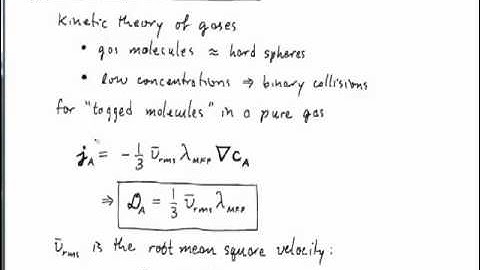 Kinetic theory of gases
• gas molecules ≈ hard spheres
• low concentrations ⇒ binary collisions
for "tagged molecules" in a pure gas
j_A = -1/3 ῡ_rms λ_MFP ∇c_A
⇒ 𝒟_A = 1/3 ῡ_rms λ_MFP
ῡ_rms is the root mean square velocity: